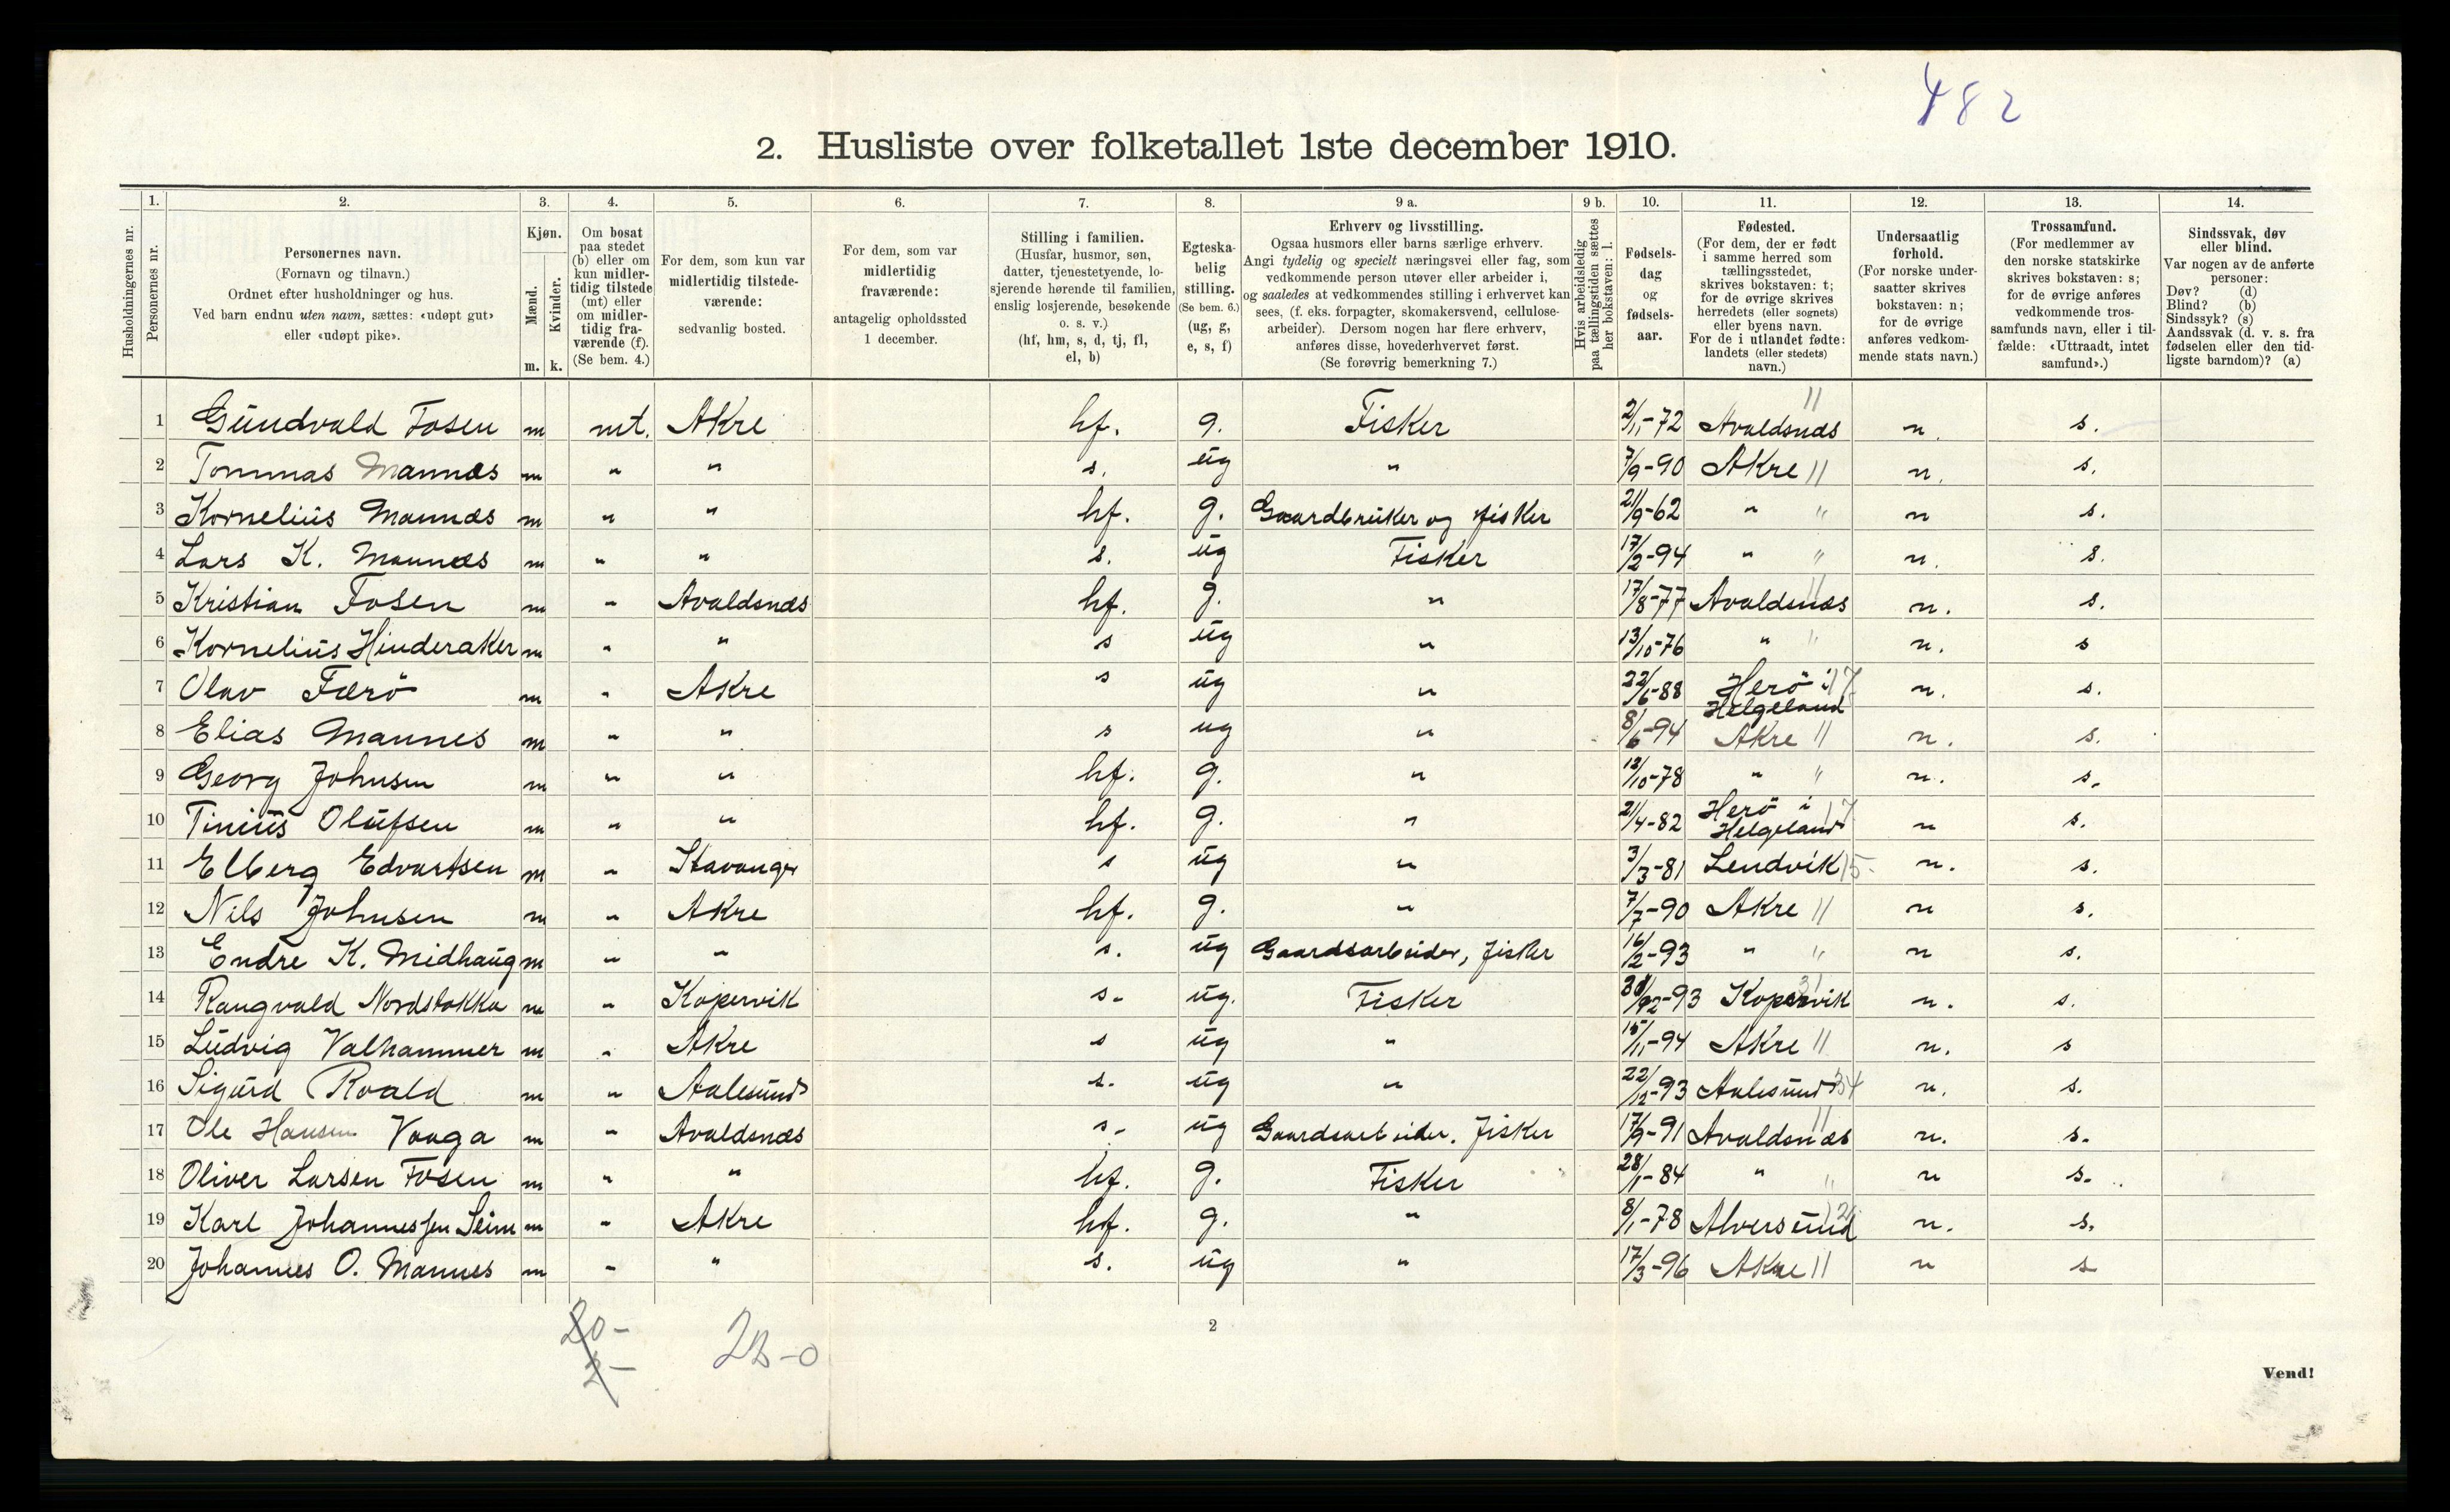 482
2. Husliste over folketallet 1ste december 1910.
Husholdningernes nr.
1. Personernes nr.
2. Personernes navn. (Fornavn og tilnavn.) Ordnet efter husholdninger og hus. Ved barn endnu uten navn, sættes: «udøpt gut» eller «udøpt pike».
3. Kjøn. Mænd. m. Kvinder. k.
4. Om bosat paa stedet (b) eller om kun midlertidig tilstede (mt) eller om midlertidig fraværende (f). (Se bem. 4.)
5. For dem, som kun var midlertidig tilstedeværende: sedvanlig bosted.
6. For dem, som var midlertidig fraværende: antagelig opholdssted 1 december.
7. Stilling i familien. (Husfar, husmor, søn, datter, tjenestetyende, losjerende hørende til familien, enslig losjerende, besøkende o. s. v.) (hf, hm, s, d, tj, fl, el, b)
8. Egteskabelig stilling. (Se bem. 6.) (ug, g, e, s, f)
9 a. Erhverv og livsstilling. Ogsaa husmors eller barns særlige erhverv. Angi tydelig og specielt næringsvei eller fag, som vedkommende person utøver eller arbeider i, og saaledes at vedkommendes stilling i erhvervet kan sees, (f. eks. forpagter, skomakersvend, cellulosearbeider). Dersom nogen har flere erhverv, anføres disse, hovederhvervet først. (Se forøvrig bemerkning 7.)
9 b. Hvis arbeidsledig paa tællingstiden sættes her bokstaven: l.
10. Fødselsdag og fødselsaar.
11. Fødested. (For dem, der er født i samme herred som tællingsstedet, skrives bokstaven: t; for de øvrige skrives herredets (eller sognets) eller byens navn. For de i utlandet fødte: landets (eller stedets) navn.)
12. Undersaatlig forhold. (For norske undersaatter skrives bokstaven: n; for de øvrige anføres vedkommende stats navn.)
13. Trossamfund. (For medlemmer av den norske statskirke skrives bokstaven: s; for de øvrige anføres vedkommende trossamfunds navn, eller i tilfælde: «Uttraadt, intet samfund».)
14. Sindssvak, døv eller blind. Var nogen av de anførte personer: Døv? (d) Blind? (b) Sindssyk? (s) Aandssvak (d. v. s. fra fødselen eller den tidligste barndom)? (a)
1 Gundvald Fosen m mt. Akre hf. g. Fisker 2/11-72 Avaldsnæs 11 n. s.
2 Tommas Mannæs m " " s. ug " 7/9-90 Akre 11 n. s.
3 Kornelius Mannæs m " " hf. g. Gaardbruker og fisker 21/9-62 " " n s.
4 Lars K. Mannæs m " " s. ug Fisker 17/2-94 " " n. s.
5 Kristian Fosen m " Avaldsnæs hf. g. " 17/8-77 Avaldsnæs 11 n. s.
6 Kornelius Hinderaker m " " s ug " 13/10-76 " " n. s
7 Olav Færö m " Akre s ug " 22/6-88 Herö i Helgeland 17 n. s.
8 Elias Mannes m " " s ug " 8/6-94 Akre 11 n. s.
9 Georg Johnsen m " " hf. g. " 12/10-78 " " n. s.
10 Tinius Olufsen m " " hf. g. " 21/4-82 Herö i Helgeland 17 n s.
11 Elberg Edvartsen m " Stavanger s ug " 3/3-81 Lendvik 15 n. s.
12 Nils Johnsen m " Akre hf. g. " 7/7-90 Akre 11 n s.
13 Endre K. Midhaug m " " s. ug Gaardsarbeider, fisker 16/2-93 " " n s.
14 Rangvald Nordstokka m " Kopervik s. ug. Fisker -93 Kopervik n. s.
15 Ludvig Valhammer m " Akre s ug " 15/11-94 Akre 11 n. s
16 Sigurd Roald m " Aalesund s. ug " 22/12-93 Aalesund 34 n. s.
17 Ole Hansen Vaaga m " Avaldsnæs s. ug Gaardsarbeider. Fisker 17/9-91 Avaldsnæs 11 n. s.
18 Oliver Larsen Fosen m " " hf. g. Fisker 28/1-84 " " n s.
19 Karl Johannessen Seim m " Akre hf. g. " 8/1-78 Alversund 12 n. s.
20 Johannes O. Mannes m " " s. ug " 17/3-96 Akre 11 n s
20-
2-
2
Vend!